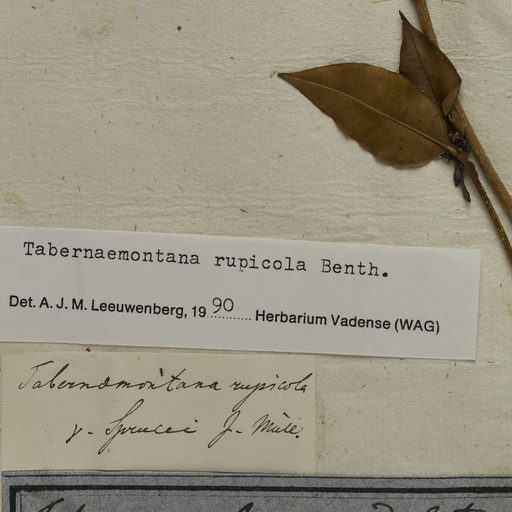 Tabernaemontana rupicola Benth.
Det. A. J. M. Leeuwenberg, 19 90 Herbarium Vadense (WAG)
Tabernæmontana rupicola
γ. Sprucei J. Müll.